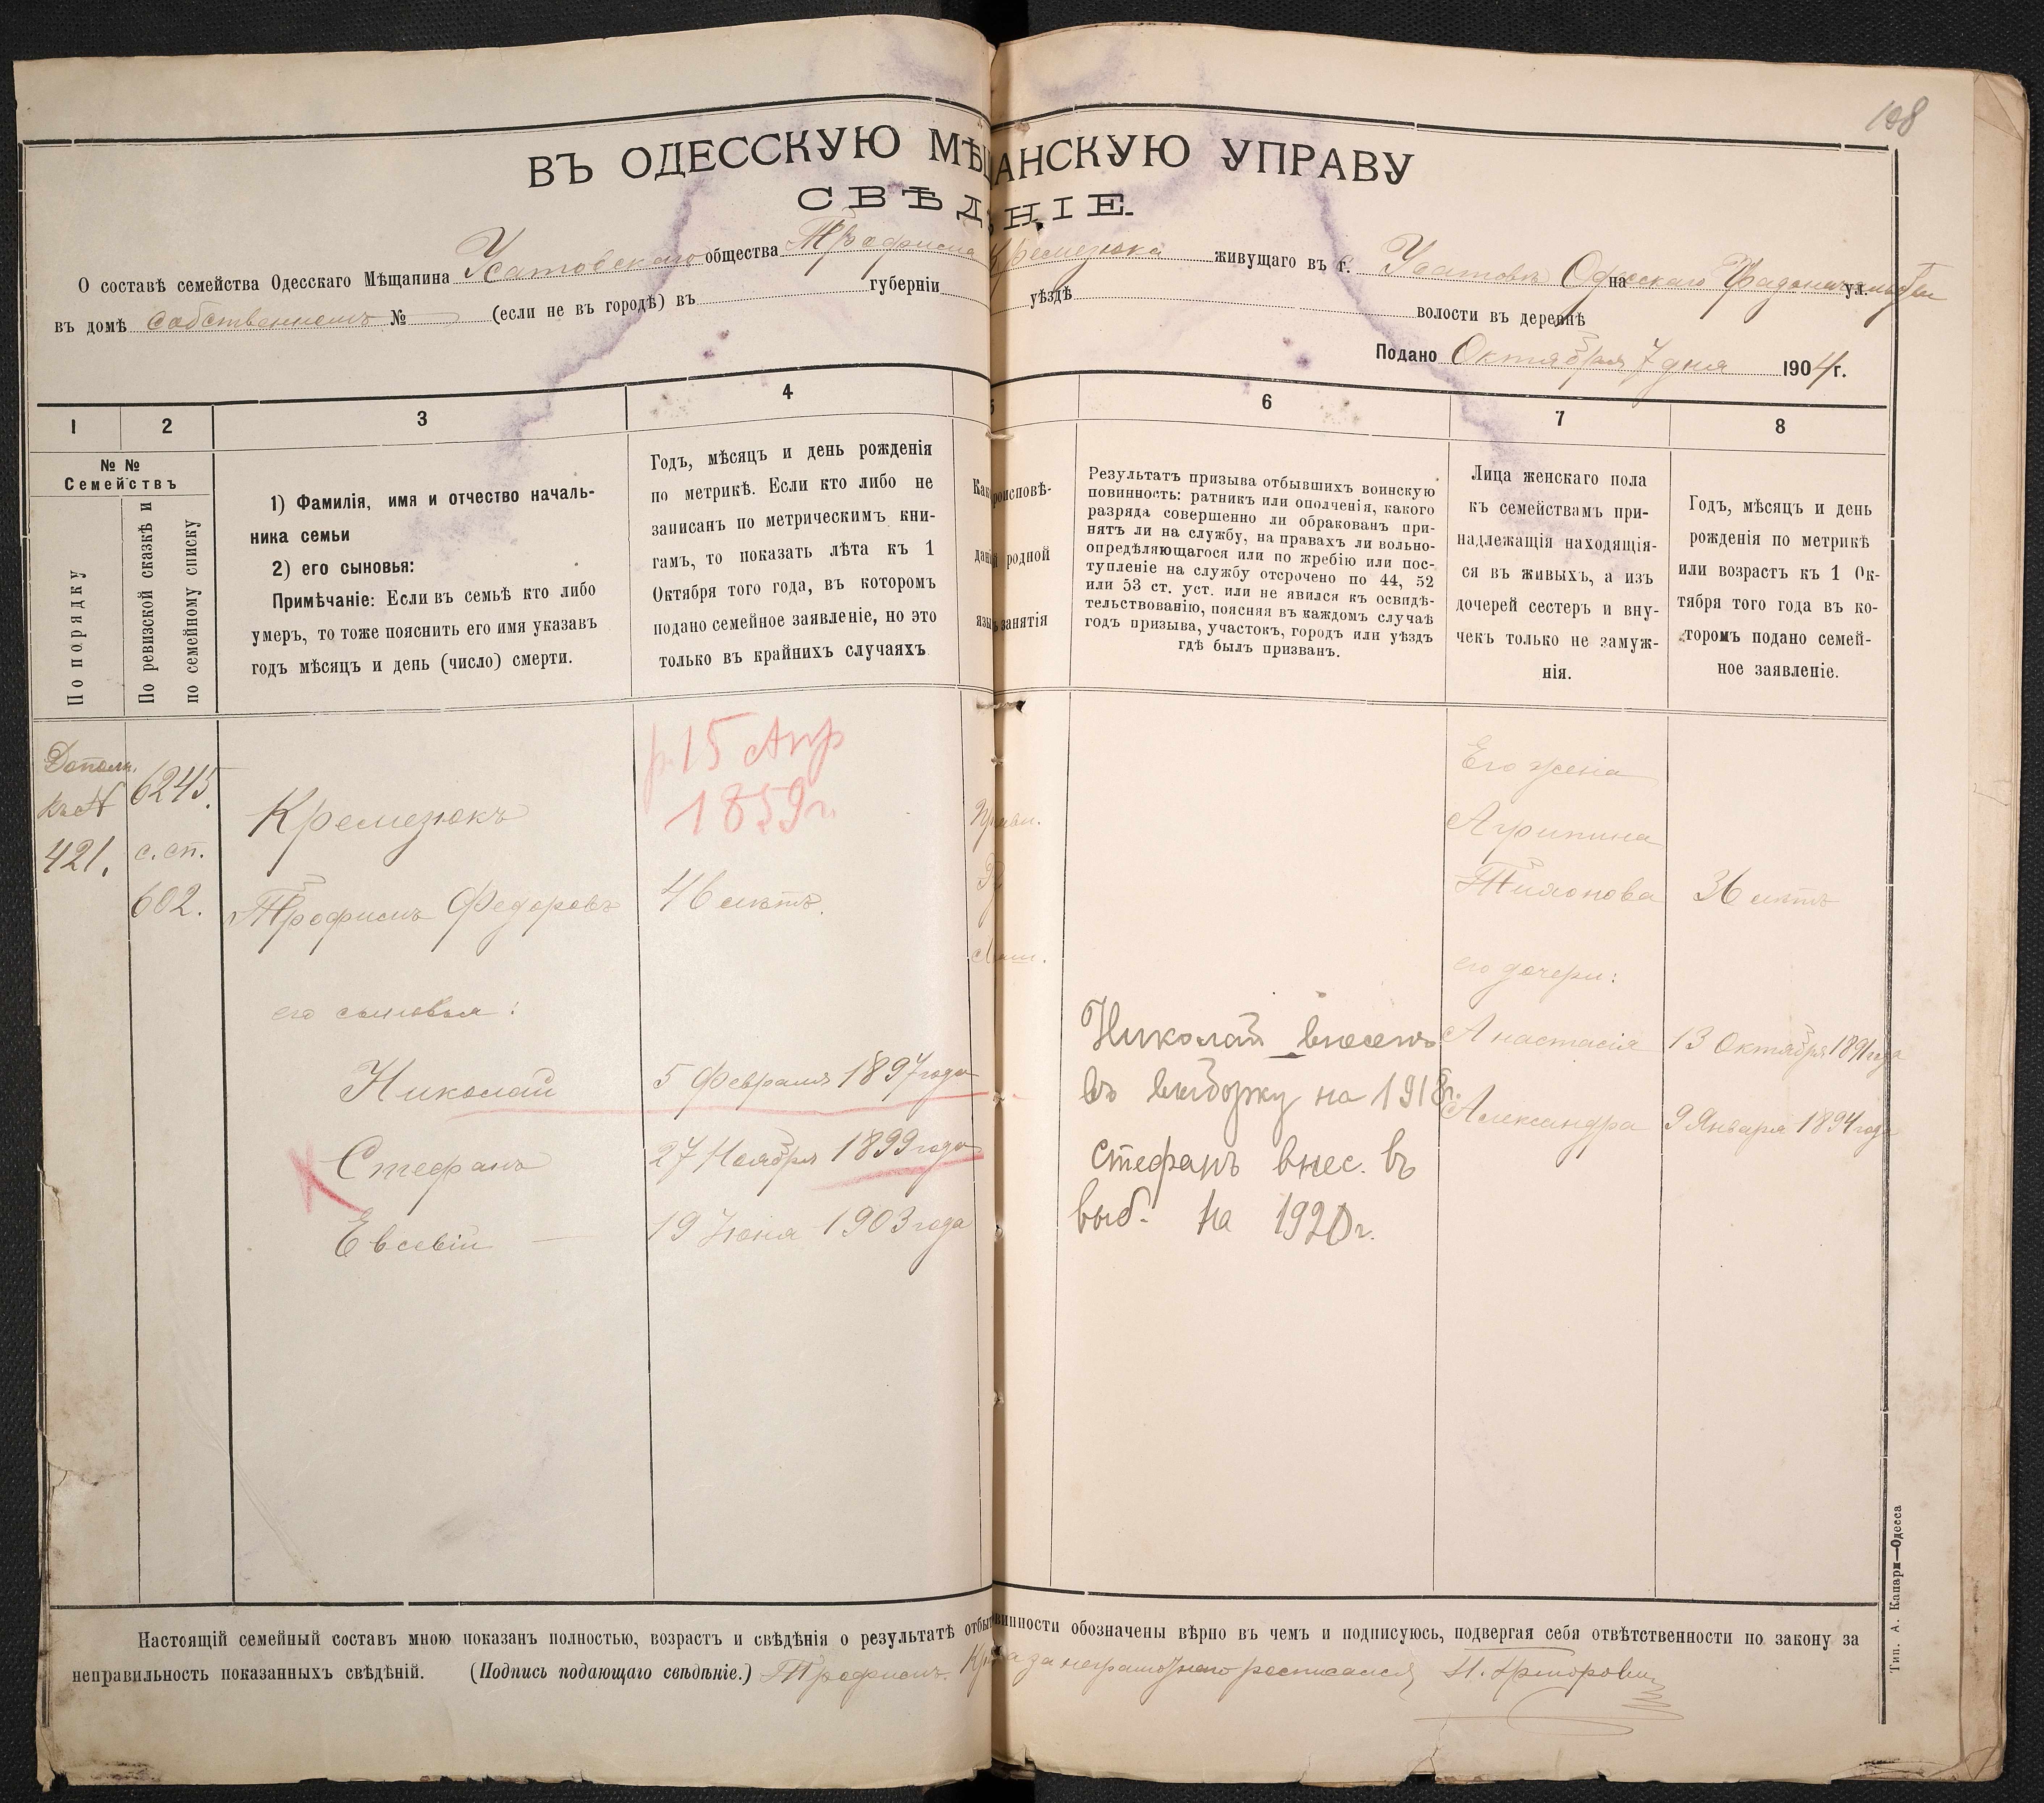 108
ВЪ ОДЕССКУЮ МѢЩАНСКУЮ УПРАВУ
СВѢДѢНІЕ.
О составѣ семейства Одесскаго Мѣщанина Усатовскаго общества Трофима Кремезюка живущаго въ г. Усатовѣ Одесскаго Градоначальства на ул.
въ домѣ собственномъ № (если не въ городѣ) въ губерніи уѣздѣ волости въ деревнѣ
Подано Октября 7 дня 1904 г.
1 2 3 4 5 6 7 8
№ №
Семействъ
По порядку
По ревизской сказкѣ и
по семейному списку
1) Фамилія, имя и отчество началь-
ника семьи
2) его сыновья:
Примѣчаніе: Если въ семьѣ кто либо
умеръ, то тоже пояснить его имя указавъ
годъ мѣсяцъ и день (число) смерти.
Годъ, мѣсяцъ и день рожденія
по метрикѣ. Если кто либо не
записанъ по метрическимъ кни-
гамъ, то показать лѣта къ 1
Октября того года, въ которомъ
подано семейное заявленіе, но это
только въ крайнихъ случаяхъ
родной
занятія
Результатъ призыва отбывшихъ воинскую
повинность: ратникъ или ополченія, какого
разряда совершенно ли обракованъ при-
нятъ ли на службу, на правахъ ли вольно-
опредѣляющагося или по жребію или пос-
тупленіе на службу отсрочено по 44, 52
или 53 ст. уст. или не явился къ освидѣ-
тельствованію, поясняя въ каждомъ случаѣ
годъ призыва, участокъ, городъ или уѣздъ
гдѣ былъ призванъ.
Лица женскаго пола
къ семействамъ при-
надлежащія находящія-
ся въ живыхъ, а изъ
дочерей сестеръ и вну-
чекъ только не замуж-
нія.
Годъ, мѣсяцъ и день
рожденія по метрикѣ
или возрастъ къ 1 Ок-
тября того года въ ко-
торомъ подано семей-
ное заявленіе.
Дополн.
къ №
421.
6245.
с. сп.
602.
Кремезюкъ
Трофимъ Федоровъ
его сыновья:
Николай
Стефанъ
Евсевій
р. 15 Апр
1859 г.
46 лѣтъ.
5 Февраля 1897 года
27 Ноября 1899 года
19 Іюня 1903 года
Николай внесенъ
въ выборку на 1918 г.
Стефанъ внес. въ
выб. на 1920 г.
Его жена
Агрипина
36 лѣтъ
его дочери:
Анастасія 13 Октября 1891 года
Александра 9 Января 1894 года
Настоящій семейный составъ мною показанъ полностью, возрастъ и свѣдѣнія о результатѣ отбыт. повинности обозначены вѣрно въ чемъ и подписуюсь, подвергая себя отвѣтственности по закону за
неправильность показанныхъ свѣдѣній. (Подпись подающаго свѣдѣніе.) Трофимъ за неграмотнаго росписался
Тип. А. Капари—Одесса